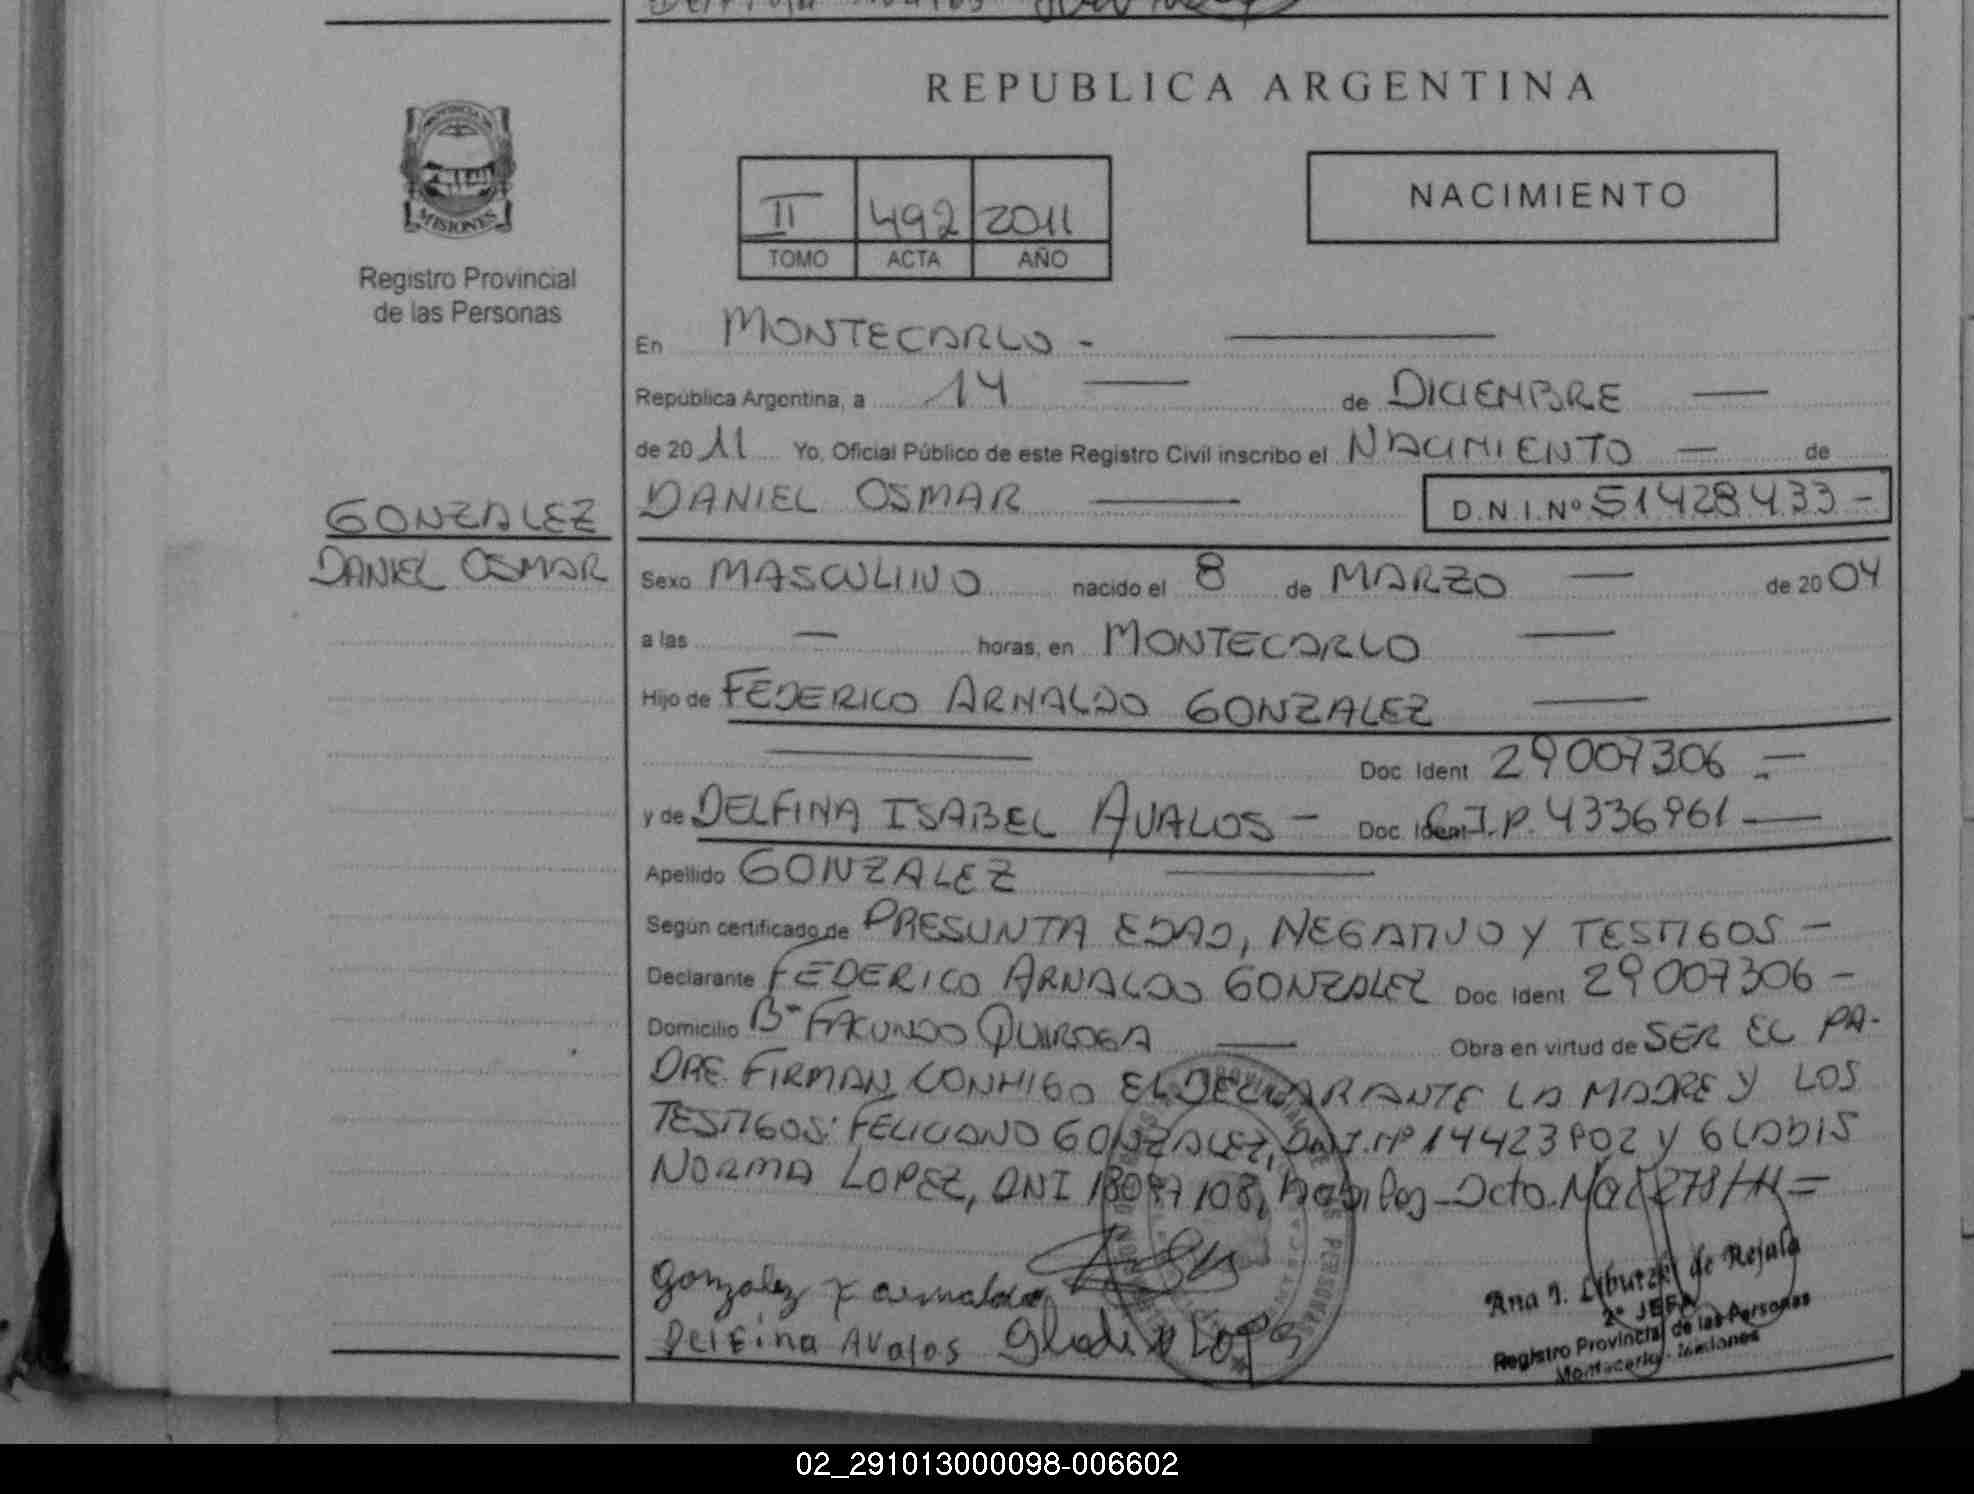 REPUBLICA ARGENTINA
PROVINCIA DE
MISIONES
Registro Provincial
de las Personas
NACIMIENTO
II 492 2011
TOMO ACTA AÑO
En MONTECARLO -
República Argentina, a 14 de DICIEMBRE
de 2011 Yo, Oficial Público de este Registro Civil inscribo el NACIMIENTO — de
GONZALEZ
DANIEL OSMAR
DANIEL OSMAR D.N.I.Nº 51428433-
Sexo MASCULINO nacido el 8 de MARZO — de 2004
a las — horas, en MONTECARLO
Hijo de FEDERICO ARNALDO GONZALEZ
Doc. Ident. 29007306.-
y de DELFINA ISABEL AVALOS - Doc. Ident C.I.P. 4336961
Apellido GONZALEZ
Según certificado de PRESUNTA EDAD, NEGATIVO Y TESTIGOS -
Declarante FEDERICO ARNALDO GONZALEZ Doc. Ident. 29007306-
Domicilio Bº FACUNDO QUIROGA Obra en virtud de SER EL PA-
DRE. FIRMAN CONMIGO EL DECLARANTE LA MADRE Y LOS
TESTIGOS: FELICIANO GONZALEZ, DNI.Nº 14423902 Y GLADIS
NORMA LOPEZ, DNI 18097108, habiles - Dcto. Nº 278/11=
Gonzalez F arnaldo
Delfina Avalos
Ana I. de Rejala
2º JEFA
Registro Provincial de las Personas
Montecarlo - Misiones
02_291013000098-006602